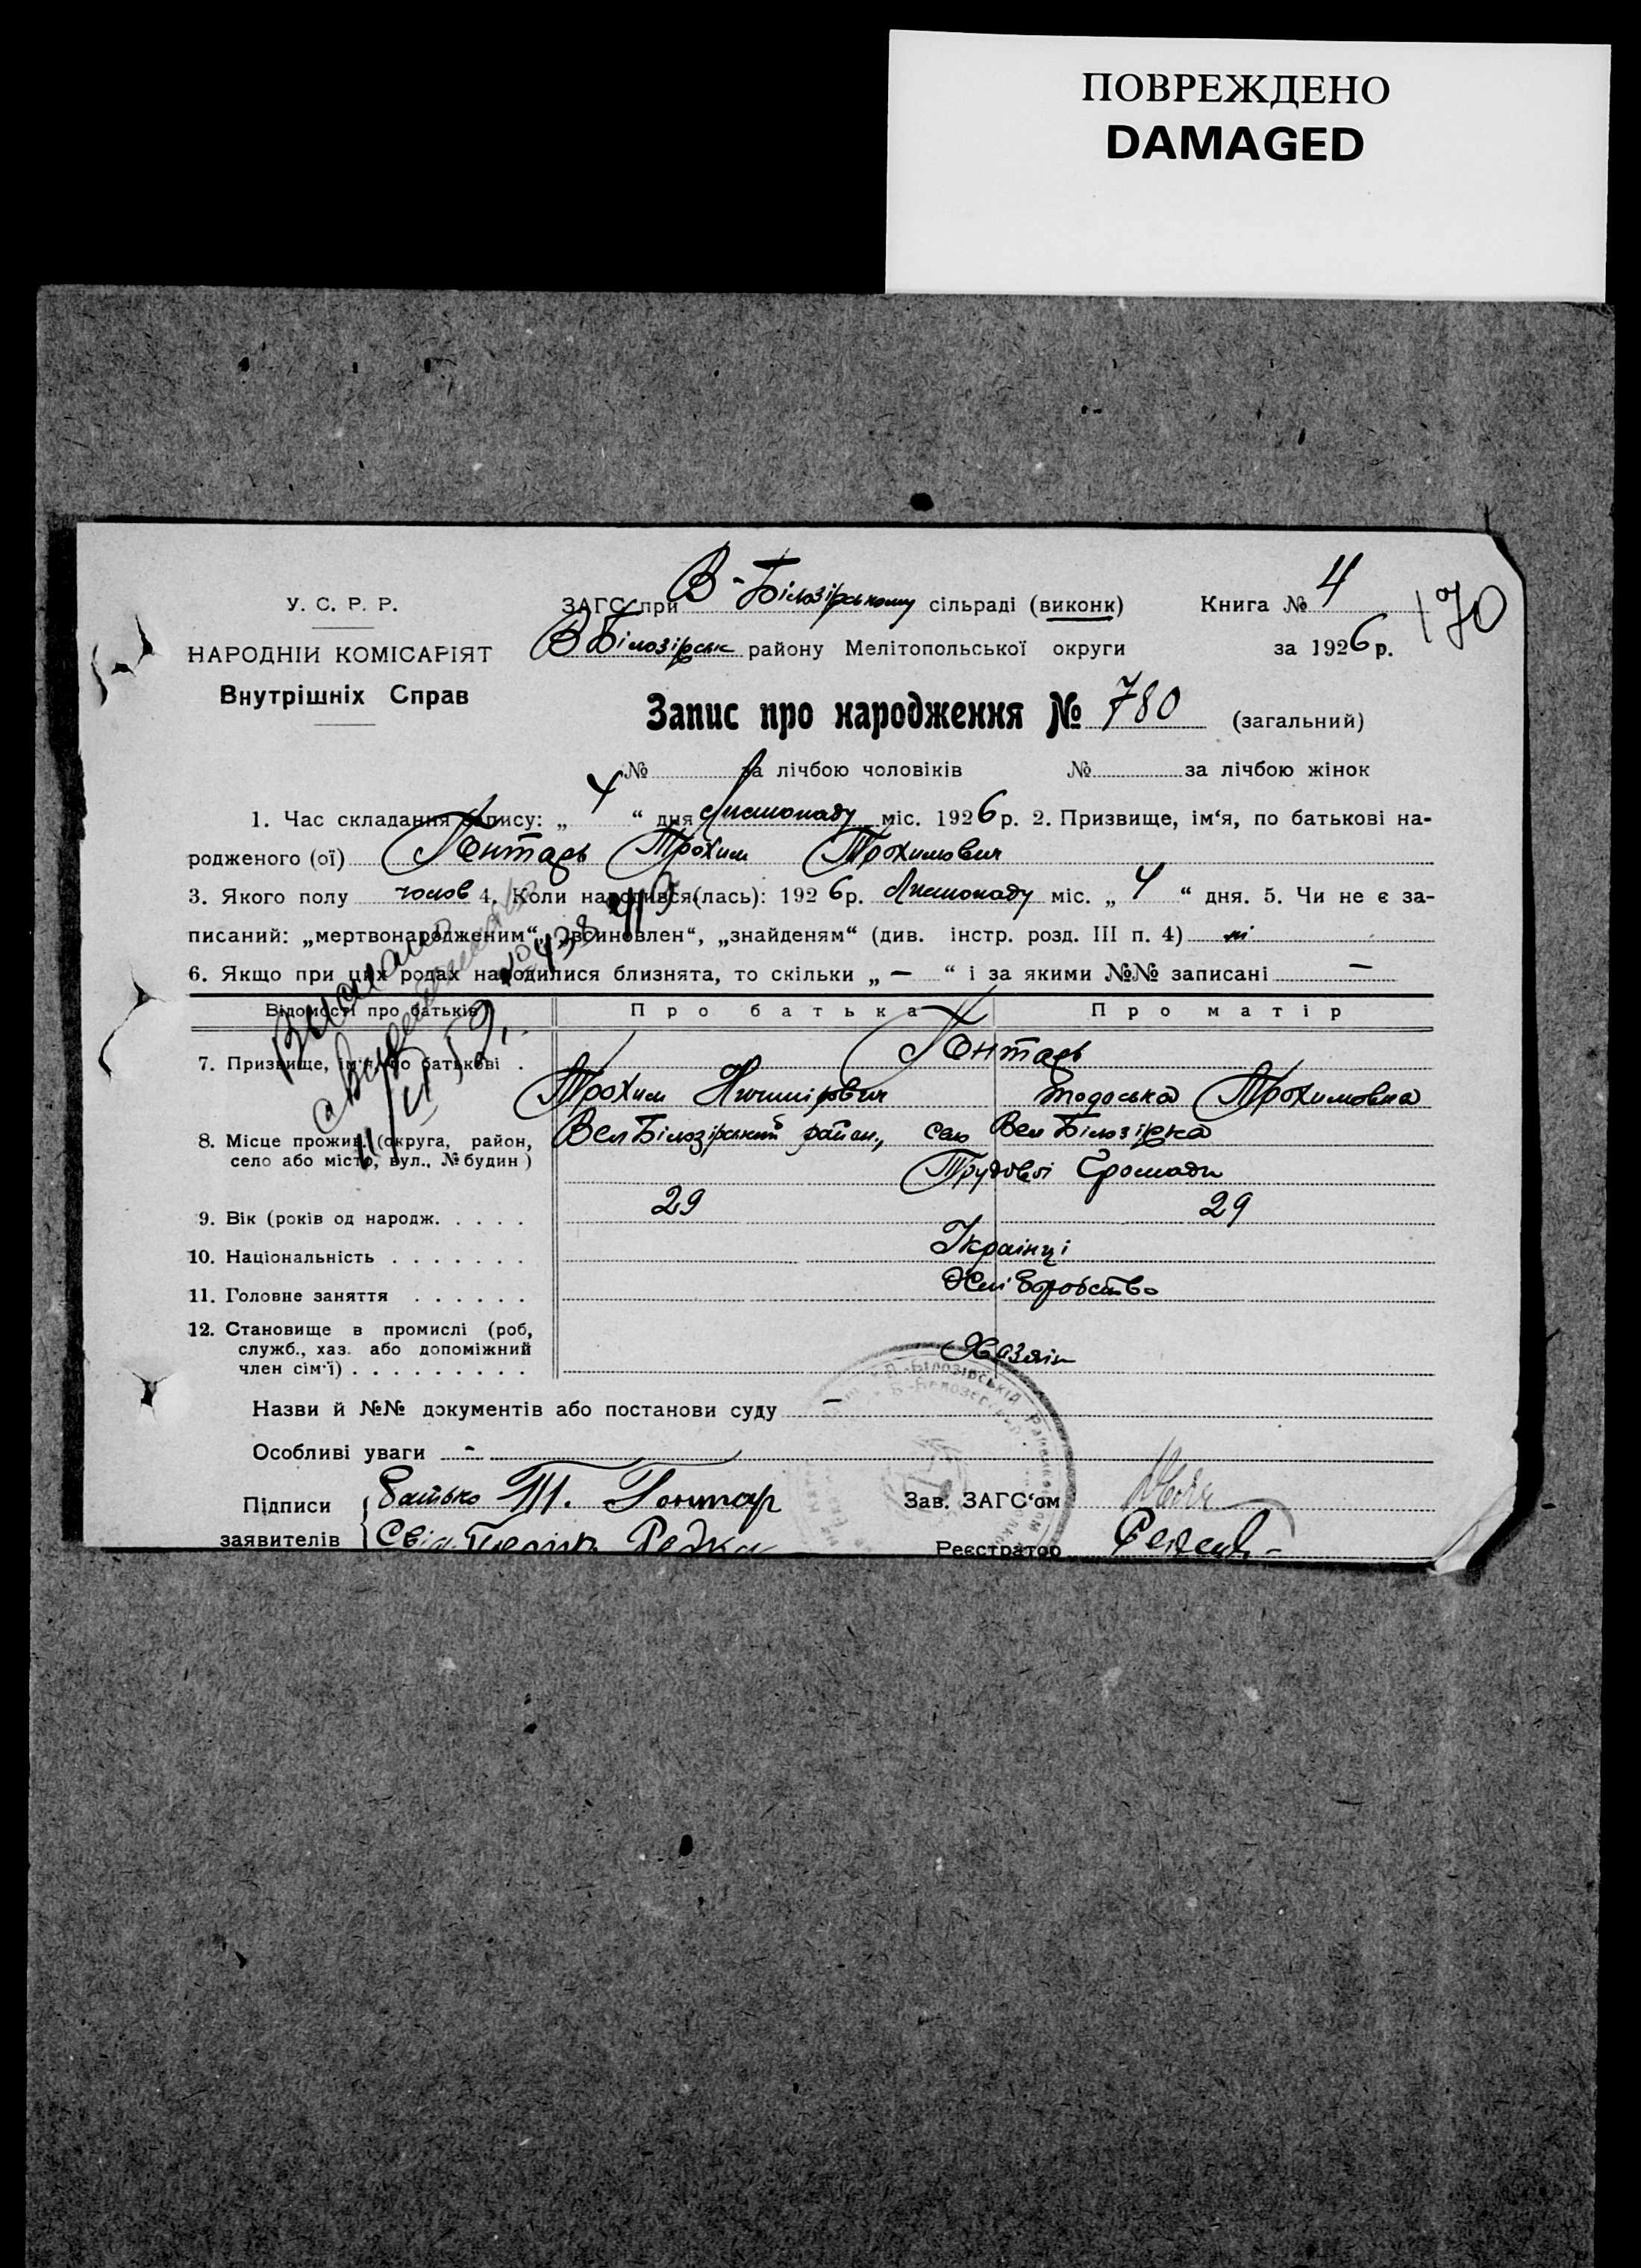 ПОВРЕЖДЕНО
DAMAGED
У. С. Р. Р.
НАРОДНІЙ КОМІСАРІЯТ
Внутрішніх Справ
ЗАГС при В-Білозірському сільраді (виконк)
Книга № 4
170
В Білозірськ району Мелітопольської округи
за 1926 р.
Запис про народження № 780 (загальний)
№ за лічбою чоловіків № за лічбою жінок
1. Час складання запису: „ 4 “ дня Листопаду міс. 1926 р. 2. Призвище, ім‘я, по батькові на-
родженого (ої) Гонтарь Трохим Трохимович
3. Якого полу чолов 4. Коли народився(лась): 1926 р. Листопаду міс. „ 4 “ дня. 5. Чи не є за-
писаний: „мертвонародженим“, „всиновлен“, „знайденям“ (див. інстр. розд. III п. 4) ні
6. Якщо при цих родах народилися близнята, то скільки „ — “ і за якими №№ записані —
Відомості про батьків Про батька Про матір
7. Призвище, ім‘я, по батькові . Гонтарь
Трохим Тодоська Трохимовна
8. Місце прожив. (округа, район, село або місто, вул., № будин) Вел Білозірський район, село Вел Білозірка
Трудової Громади
9. Вік (років од народж. . . . . 29 29
10. Національність . . . . . . . Українці
11. Головне заняття . . . . . . Хліборобство
12. Становище в промислі (роб, служб., хаз. або допоміжний член сім‘ї) . . . . . . . . . Хазяїн
Назви й №№ документів або постанови суду —
Особливі уваги -
Підписи заявителів
батько Т. Гонтар
Зав. ЗАГС‘ом
Реєстратор